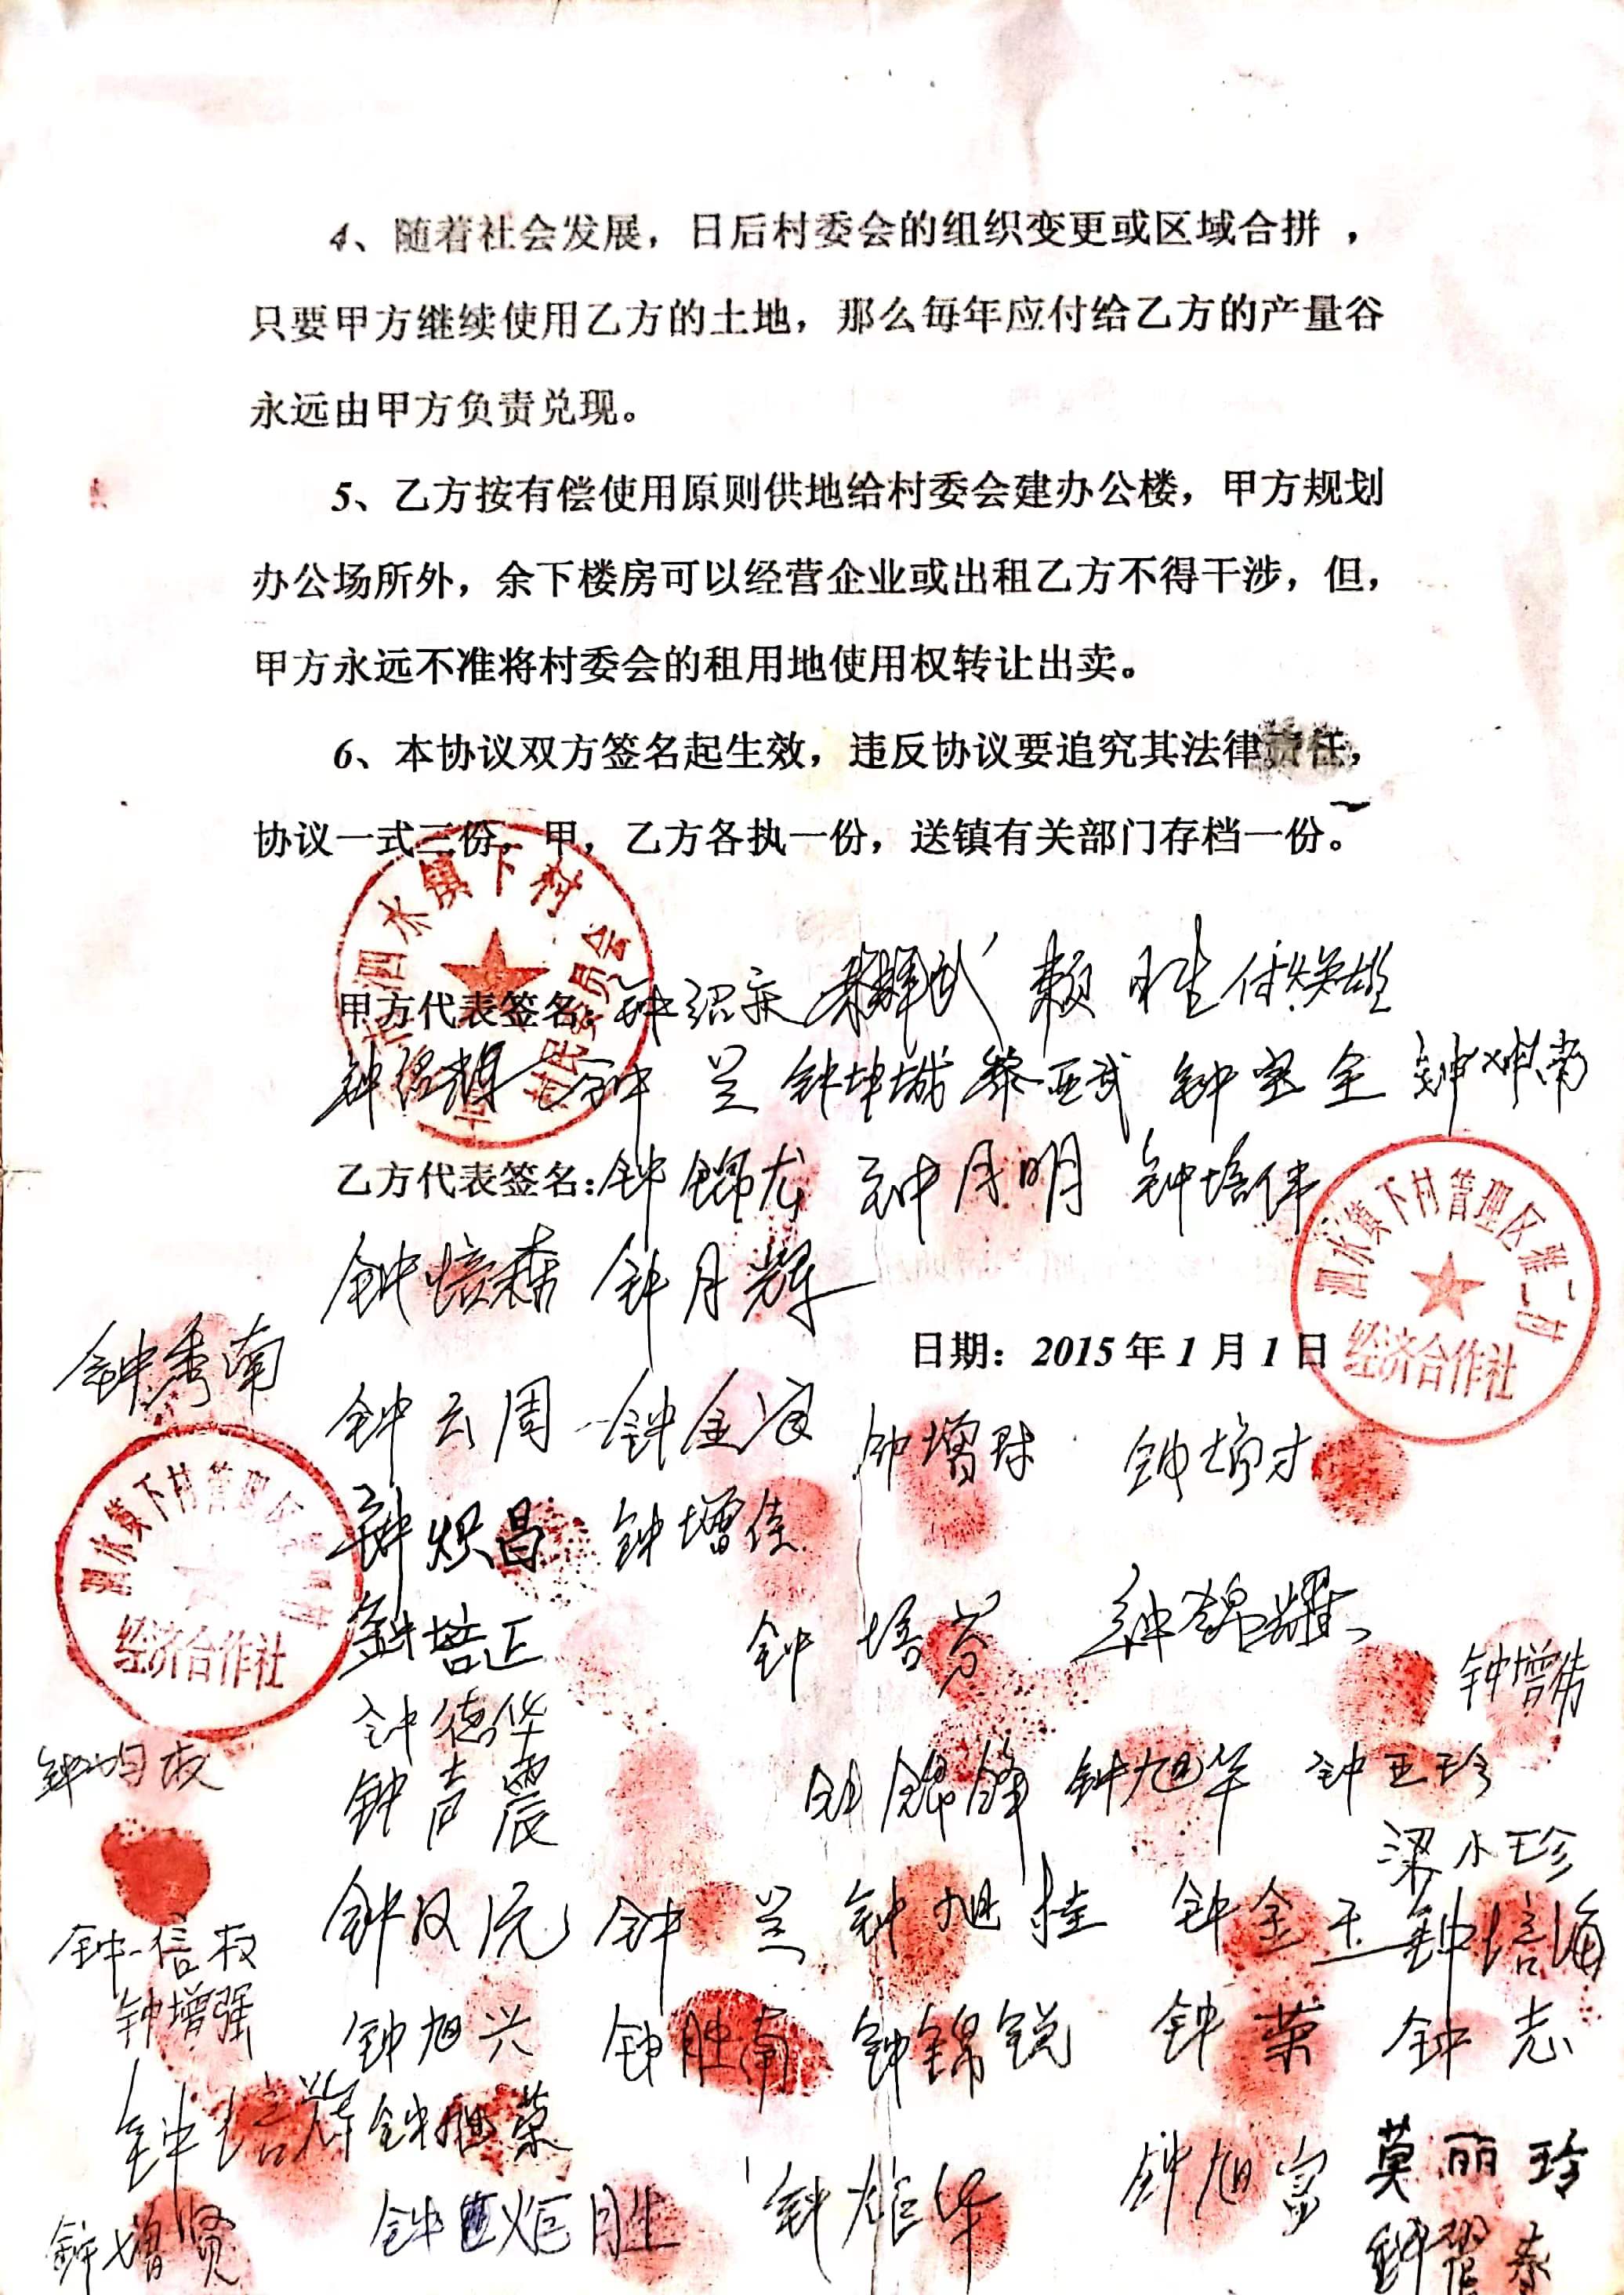 4、随着社会发展，日后村委会的组织变更或区域合拼，
只要甲方继续使用乙方的土地，那么每年应付给乙方的产量谷
永远由甲方负责兑现。
5、乙方按有偿使用原则供地给村委会建办公楼，甲方规划
办公场所外，余下楼房可以经营企业或出租乙方不得干涉，但，
甲方永远不准将村委会的租用地使用权转让出卖。
6、本协议双方签名起生效，违反协议要追究其法律责任，
协议一式三份，甲，乙方各执一份，送镇有关部门存档一份。
泗水镇下村 村民委员会
甲方代表签名：钟绍 赖 付焕雄
钟 钟兰 钟坤城 黎亚武 钟宝全 钟 南
乙方代表签名：钟锦龙 钟月明 钟培伟
钟培森 钟月辉
泗水镇下村管理区 二村
经济合作社
日期：2015年1月1日
钟秀南
钟云周 钟金 钟增球 钟培才
钟炽昌 钟增佳
泗水镇下村管理区 村
经济合作社
钟培正 钟培芬 钟锦耀
钟德华 钟增伟
钟均
钟声震 钟锦锋 钟旭华 钟亚珍
梁小珍
钟汉 钟兰 钟旭 钟金玉 钟培海
钟信权
钟增强
钟旭兴 钟胜南 钟锦锐 钟荣 钟志
钟培辉 钟旭荣
钟旭富 莫丽珍
钟增贤 钟炬胜 钟雄华
钟 泰